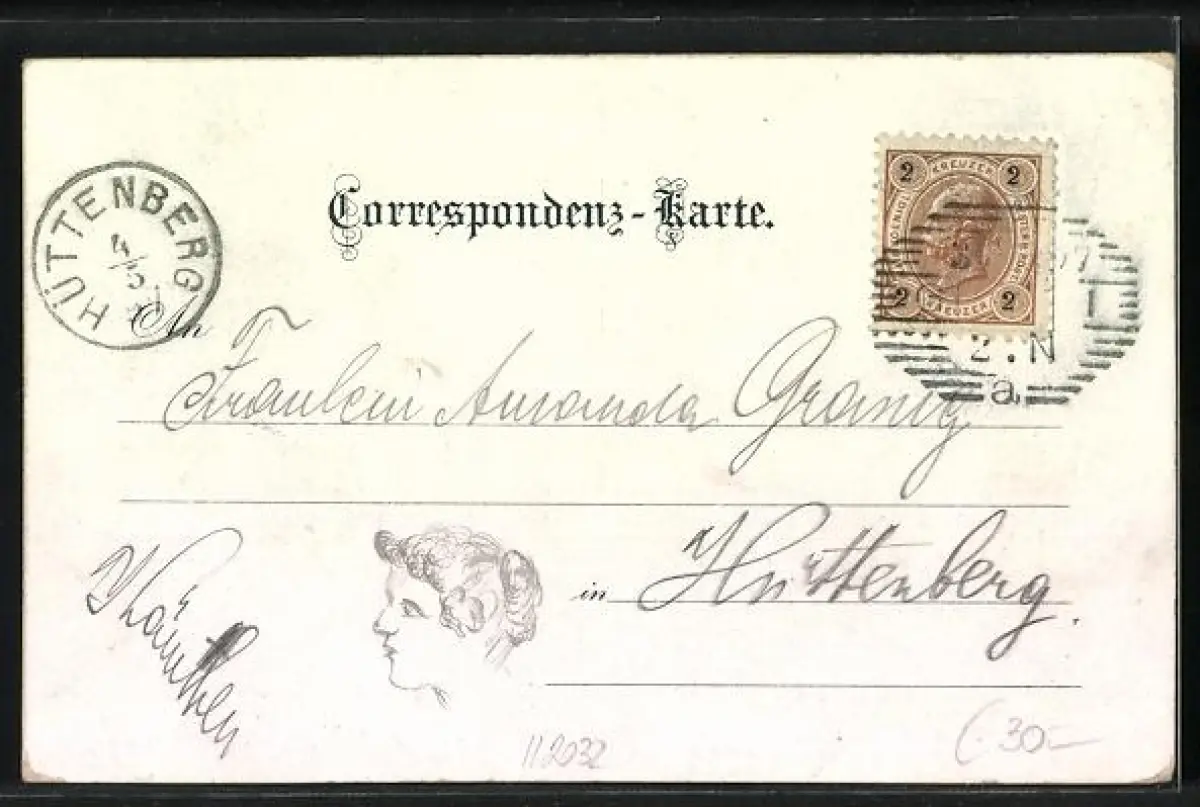 Correspondenz-Karte.
HÜTTENBERG
4/5
2 KREUZER 2
2 KREUZER 2
2.N
a
An
Fräulein Amanda
in Hüttenberg.
Kärnthen
112032
30-